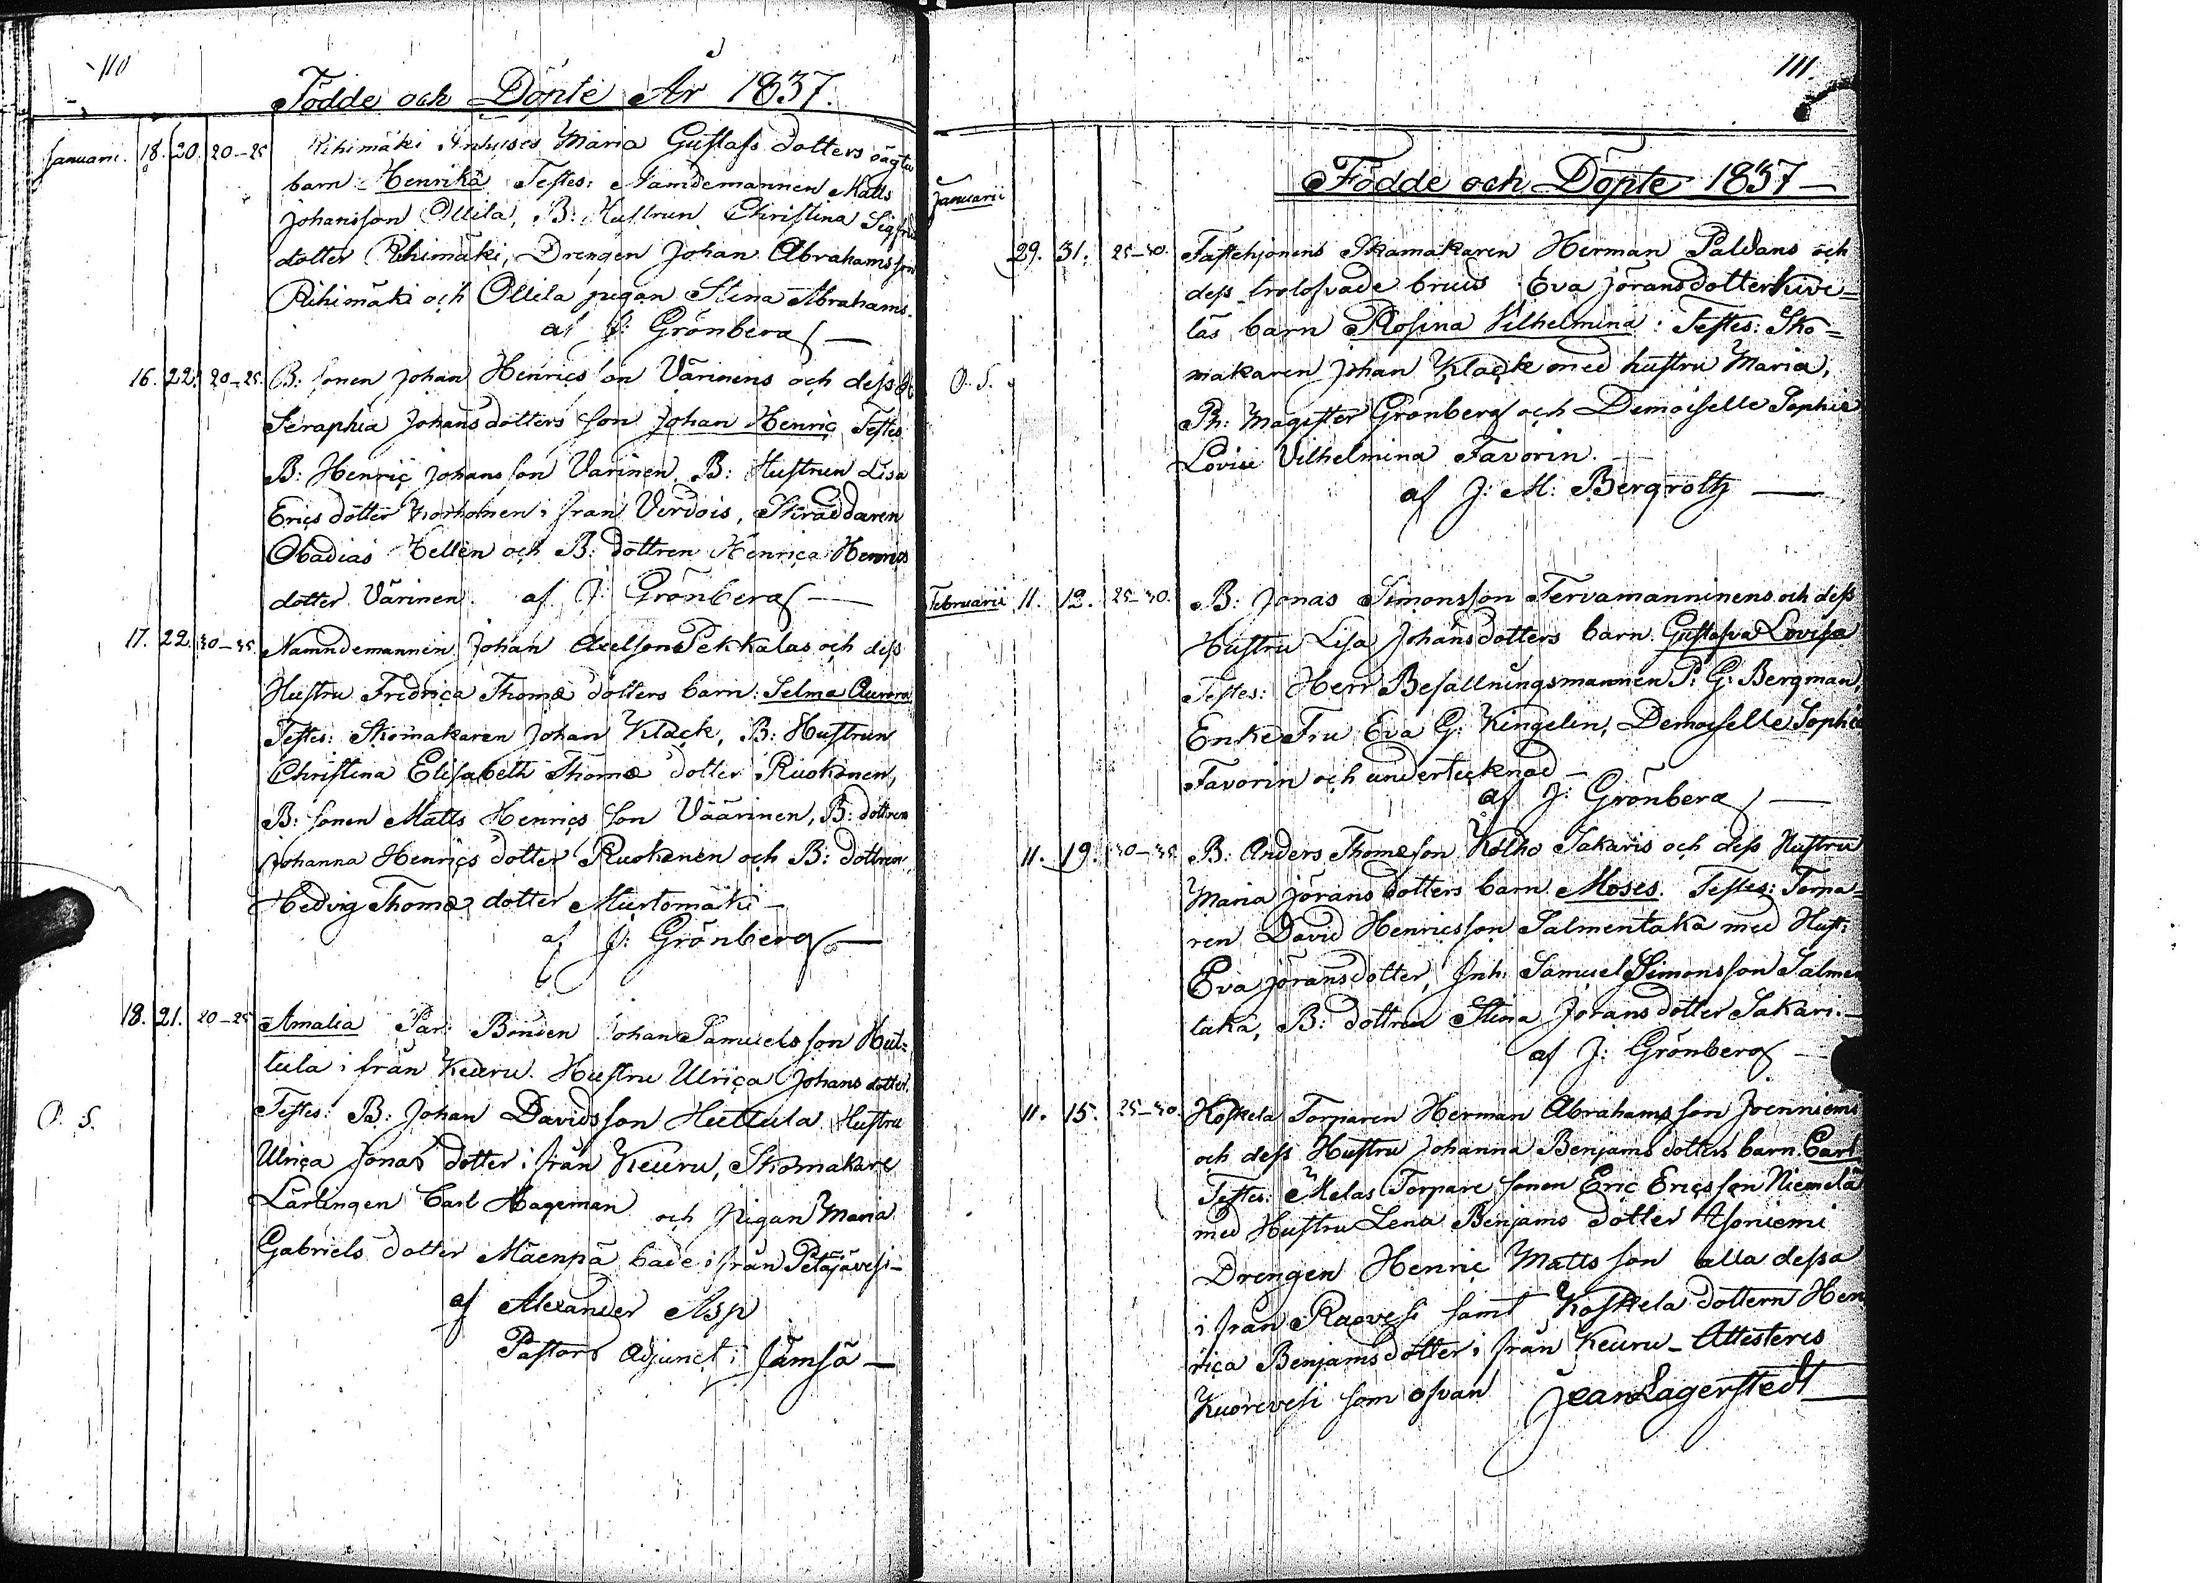 110
Födde och Döpte År 1837.
Januarii. 18. 20. 20-25 Rihimäki Inhyses Maria Gustafs dotters oägta
barn Henrika Testes: Namdemannen Matts
Johansson Ollila, B: Hustrun Christina Sigfrids
dotter Rihimäki, Drengen Johan Abrahamsson
Rihimäki och Ollila pigan Stina Abrahams.
af J: Grönberg
16. 22. 20-25. B: sonen Johan Henrics son Värinens och dess
Seraphia Johans dotters son Johan Henric Testes
B: Henric Johans son Varinen, B: Hustrun Lisa
Erics dotter Korhonen i från Virdois, Skräddaren
Obadias Hellen och B: dottren Henrica Henrics
dotter Värinen. af J: Grönberg
17. 22. 30-35. Namndemannen Johan Axelson Pekkalas och dess
Hustru Fredrica Thomæ dotters barn: Selma Aurora
Testes: Skomakaren Johan Klack, B: Hustrun
Christina Elisabeth Thomæ dotter Ruokonen,
B: sonen Matts Henrics son Väärinen, B: dottren
Johanna Henrics dotter Ruokonen och B: dottren
Hedvig Thomæ dotter Murtomäki
af J: Grönberg
18. 21. 20-25 Amalia Par: Bonden Johan Samuels son Hut=
tula i från Keuru. Hustru Ulrica Johans dotter.
O. S. Testes: B: Johan Davids son Huttula Hustru
Ulrica Jonas dotter i från Keuru, Skomakare
Lärlingen Carl Hageman och Pigan Maria
Gabriels dotter Mäenpä både i från Petäjävesi
af Alexander Asp
Pastors Adjunct i Jämsä
111.
Födde och Döpte 1837
Januarii
29. 31. 25-30. Fästehjonens Skomakaren Herman Paldans och
dess trolofvade brud Eva Jöransdotter Kive=
läs barn Rosina Vilhelmina: Testes: Sko=
O. S. makaren Johan Klack med hustru Maria,
Ph: Magister Grönberg och Demoiselle Sophie
Lovise Vilhelmina Favorin.
af J: M: Bergroth
Februarii 11. 12. 25-30. B: Jonas Simonsson Tervamanninens och dess
hustru Lisa Johansdotters barn Gustafva Lovisa
Testes: Herr Befallningsmannen P: G: Bergman,
Enke Fru Eva G: Kingelin, Demoiselle Sophie
Favorin och undertecknad
af J: Grönberg
11. 19. 30-35 B: Anders Thomæson Kolho Sakaris och dess Hustru
Maria Jörans dotters barn Moses. Testes: Torpa=
ren David Henricsson Salmentaka med Hust:
Eva Jöransdotter, Inh: Samuel Simonsson Salmen
taka, B: dottren Stina Jörans dotter Sakari.
af J: Grönberg
11. 15. 25-30. Koskela Torparen Herman Abrahams son Joenniemi
och dess Hustru Johanna Benjams dotters barn Carl
Testes: Melas Torpare sonen Eric Ericsson Niemelä
med Hustru Lena Benjams dotter Asoniemi
Drengen Henric Matts son alla dessa
i från Ruovesi samt Koskela dottern Hen
rica Benjamsdotter i från Keuru - Attesteres
Kuorevesi som ofvan Jean Lagerstedt